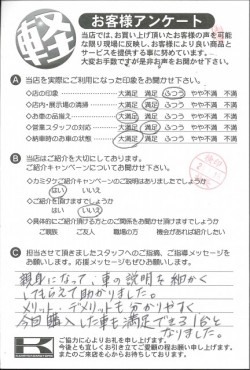 軽
お客様アンケート
当店では、お買い上げ頂いたお客様の声を可能
な限り現場に反映し、お客様により良い商品と
サービスを提供する事に努めています。
大変お手数ですが是非お声をお聞かせ下さい。
A 当店を実際にご利用になった印象をお聞かせ下さい。
◇店の印象 大満足 満足 ふつう やや不満 不満
◇店内・展示場の清掃 大満足 満足 ふつう やや不満 不満
◇お車の品揃え 大満足 満足 ふつう やや不満 不満
◇営業スタッフの対応 大満足 満足 ふつう やや不満 不満
◇納車時のお車の状態 大満足 満足 ふつう やや不満 不満
B 当店はご紹介を大切にしております。
ご紹介キャンペーンについてお聞かせ下さい。
◇カミタケご紹介キャンペーンのご説明はありましたでしょうか
はい いいえ
◇ご紹介を頂けますでしょうか
はい いいえ
◇具体的にご紹介頂ける方とのご関係をお聞かせ頂けますでしょうか
ご親族 ご友人 職場の方 機会があれば紹介したい
C 担当させて頂きましたスタッフへのご指摘、ご指導メッセージを
お願いします。応援メッセージもぜひお願いします。
親身になって、車の説明も細かく
してもらえて助かりました。
メリット・デメリットも分かりやすく
今回購入した車も満足できる1台と
なりました。
K
ご協力に心よりお礼を申し上げます。
今後とも宜しくお引き立てご愛顧の程お願い申し上げます。
またのご来店を心からお待ちしております。